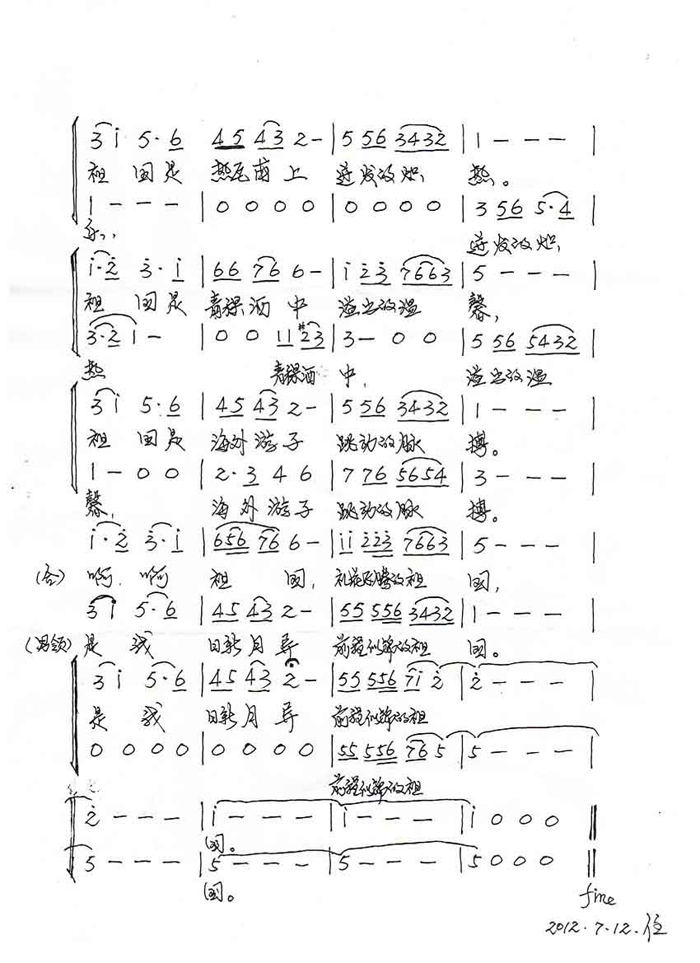 3 i 5·6 | 45 43 2 – | 5 56 3432 | 1 – – – |
祖 国是 热尾苗上 迸发的炽 热。
1 – – – | 0 0 0 0 | 0 0 0 0 | 3 56 5·4 |
迸发的炽
i·2 3·i | 66 76 6 – | i 23 7663 | 5 – – – |
祖 国是 青稞酒 中 溢出的温 馨,
3·2 1 – | 0 0 11 #23 | 3 – 0 0 | 5 56 5432 |
热 青稞酒 中, 溢出的温
3 i 5·6 | 45 43 2 – | 5 56 3432 | 1 – – – |
祖 国是 海外游子 跳动的脉 搏。
1 – 0 0 | 2·3 4 6 | 7 76 5654 | 3 – – – |
馨, 海外游子 跳动的脉 搏。
i·2 3·i | 656 76 6 – | ii 223 7663 | 5 – – – |
(合) 啊, 啊 祖 国, 的祖 国,
3 i 5·6 | 45 43 2 – | 55 556 3432 | 1 – – – |
(男领) 是 我 日新月异 前程似锦的祖 国。
3 i 5·6 | 45 43 2 – | 55 556 7i 2 | 2 – – – |
是 我 日新月异 前程似锦的祖
0 0 0 0 | 0 0 0 0 | 55 556 76 5 | 5 – – – |
前程似锦的祖
2 – – – | i – – – | i – – – | i 0 0 0 ||
国。
5 – – – | 5 – – – | 5 – – – | 5 0 0 0 ||
国。
fine
2012·7·12.